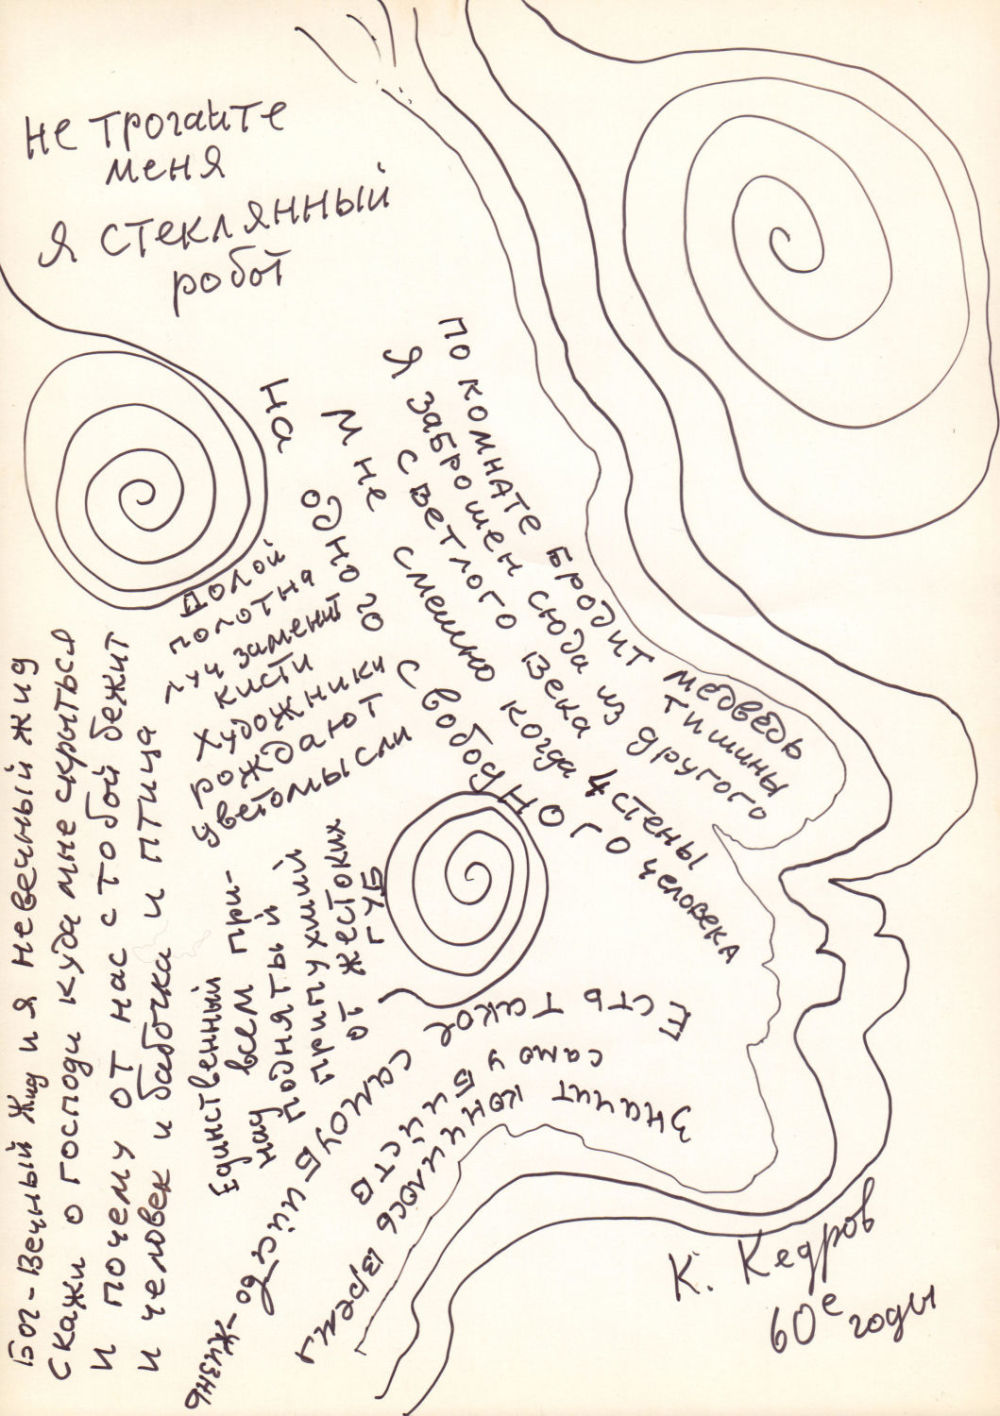 не трогайте
меня
я стеклянный
робот
По комнате бродит медведь тишины
Я заброшен сюда из другого
светлого века
Мне смешно когда 4 стены
На одного свободного человека
Долой
полотна
луч заменит
кисти
Художники
рождают
цветомысли
Единственный
всем при-
нау поднятый
припухший
от жестоких
губ
Есть такое
самоубийство-жизнь
Значит кончилось время
самоубийств
Бог-Вечный Жид и я невечный жид
Скажи о господи куда мне скрыться
И почему от нас с тобой бежит
И человек и бабочка и птица
К. Кедров
60е годы